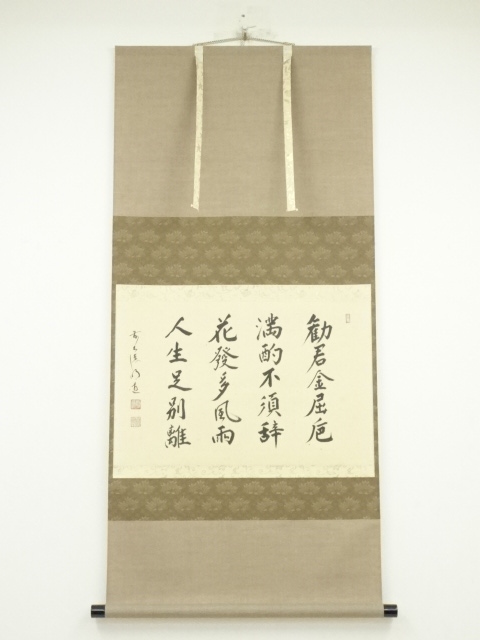 勸君金屈巵
満酌不須辞
花發多風雨
人生足別離